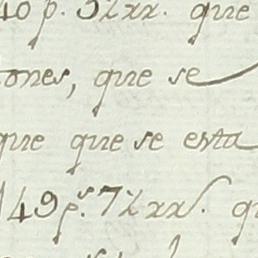 40 p. que
ones, que se
que que se esta
149 p.s 7